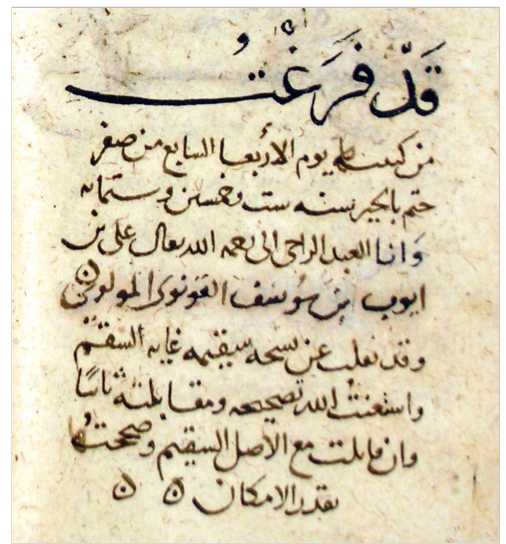 قَدْ فَرَغْتُ
من كتبته يوم الاربعا السابع من صفر
ختم بالخير سنه ست وخمسين وستمايه
وَانا العبد الراجى الى نعمه الله تعالى على بن
ايوب بن يوسف القونوى المولوى
وقد نقلت عن نسخه سقيمه غايه السقم
واستعنتُ الله تصحيحه ومقابلته ثانيًا
وان قابلت مع الاصل السقيم وصححتها
بقدر الامكان